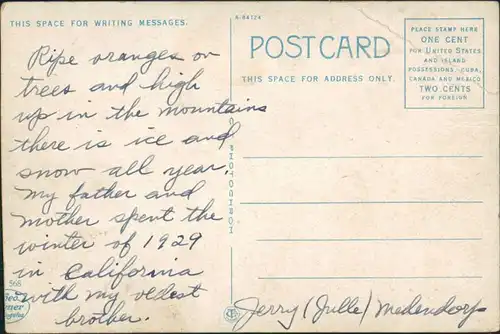 THIS SPACE FOR WRITING MESSAGES.
Ripe oranges on
trees and high
up in the mountains
there is ice and
snow all year.
My father and
mother spent the
winter of 1929
in California
with my oldest
brother.
568
A-84124
POSTCARD
THIS SPACE FOR ADDRESS ONLY.
PLACE STAMP HERE
ONE CENT
FOR UNITED STATES
AND ISLAND
POSSESSIONS, CUBA,
CANADA AND MEXICO
TWO CENTS
FOR FOREIGN
Jerry (Julle) Medendorp